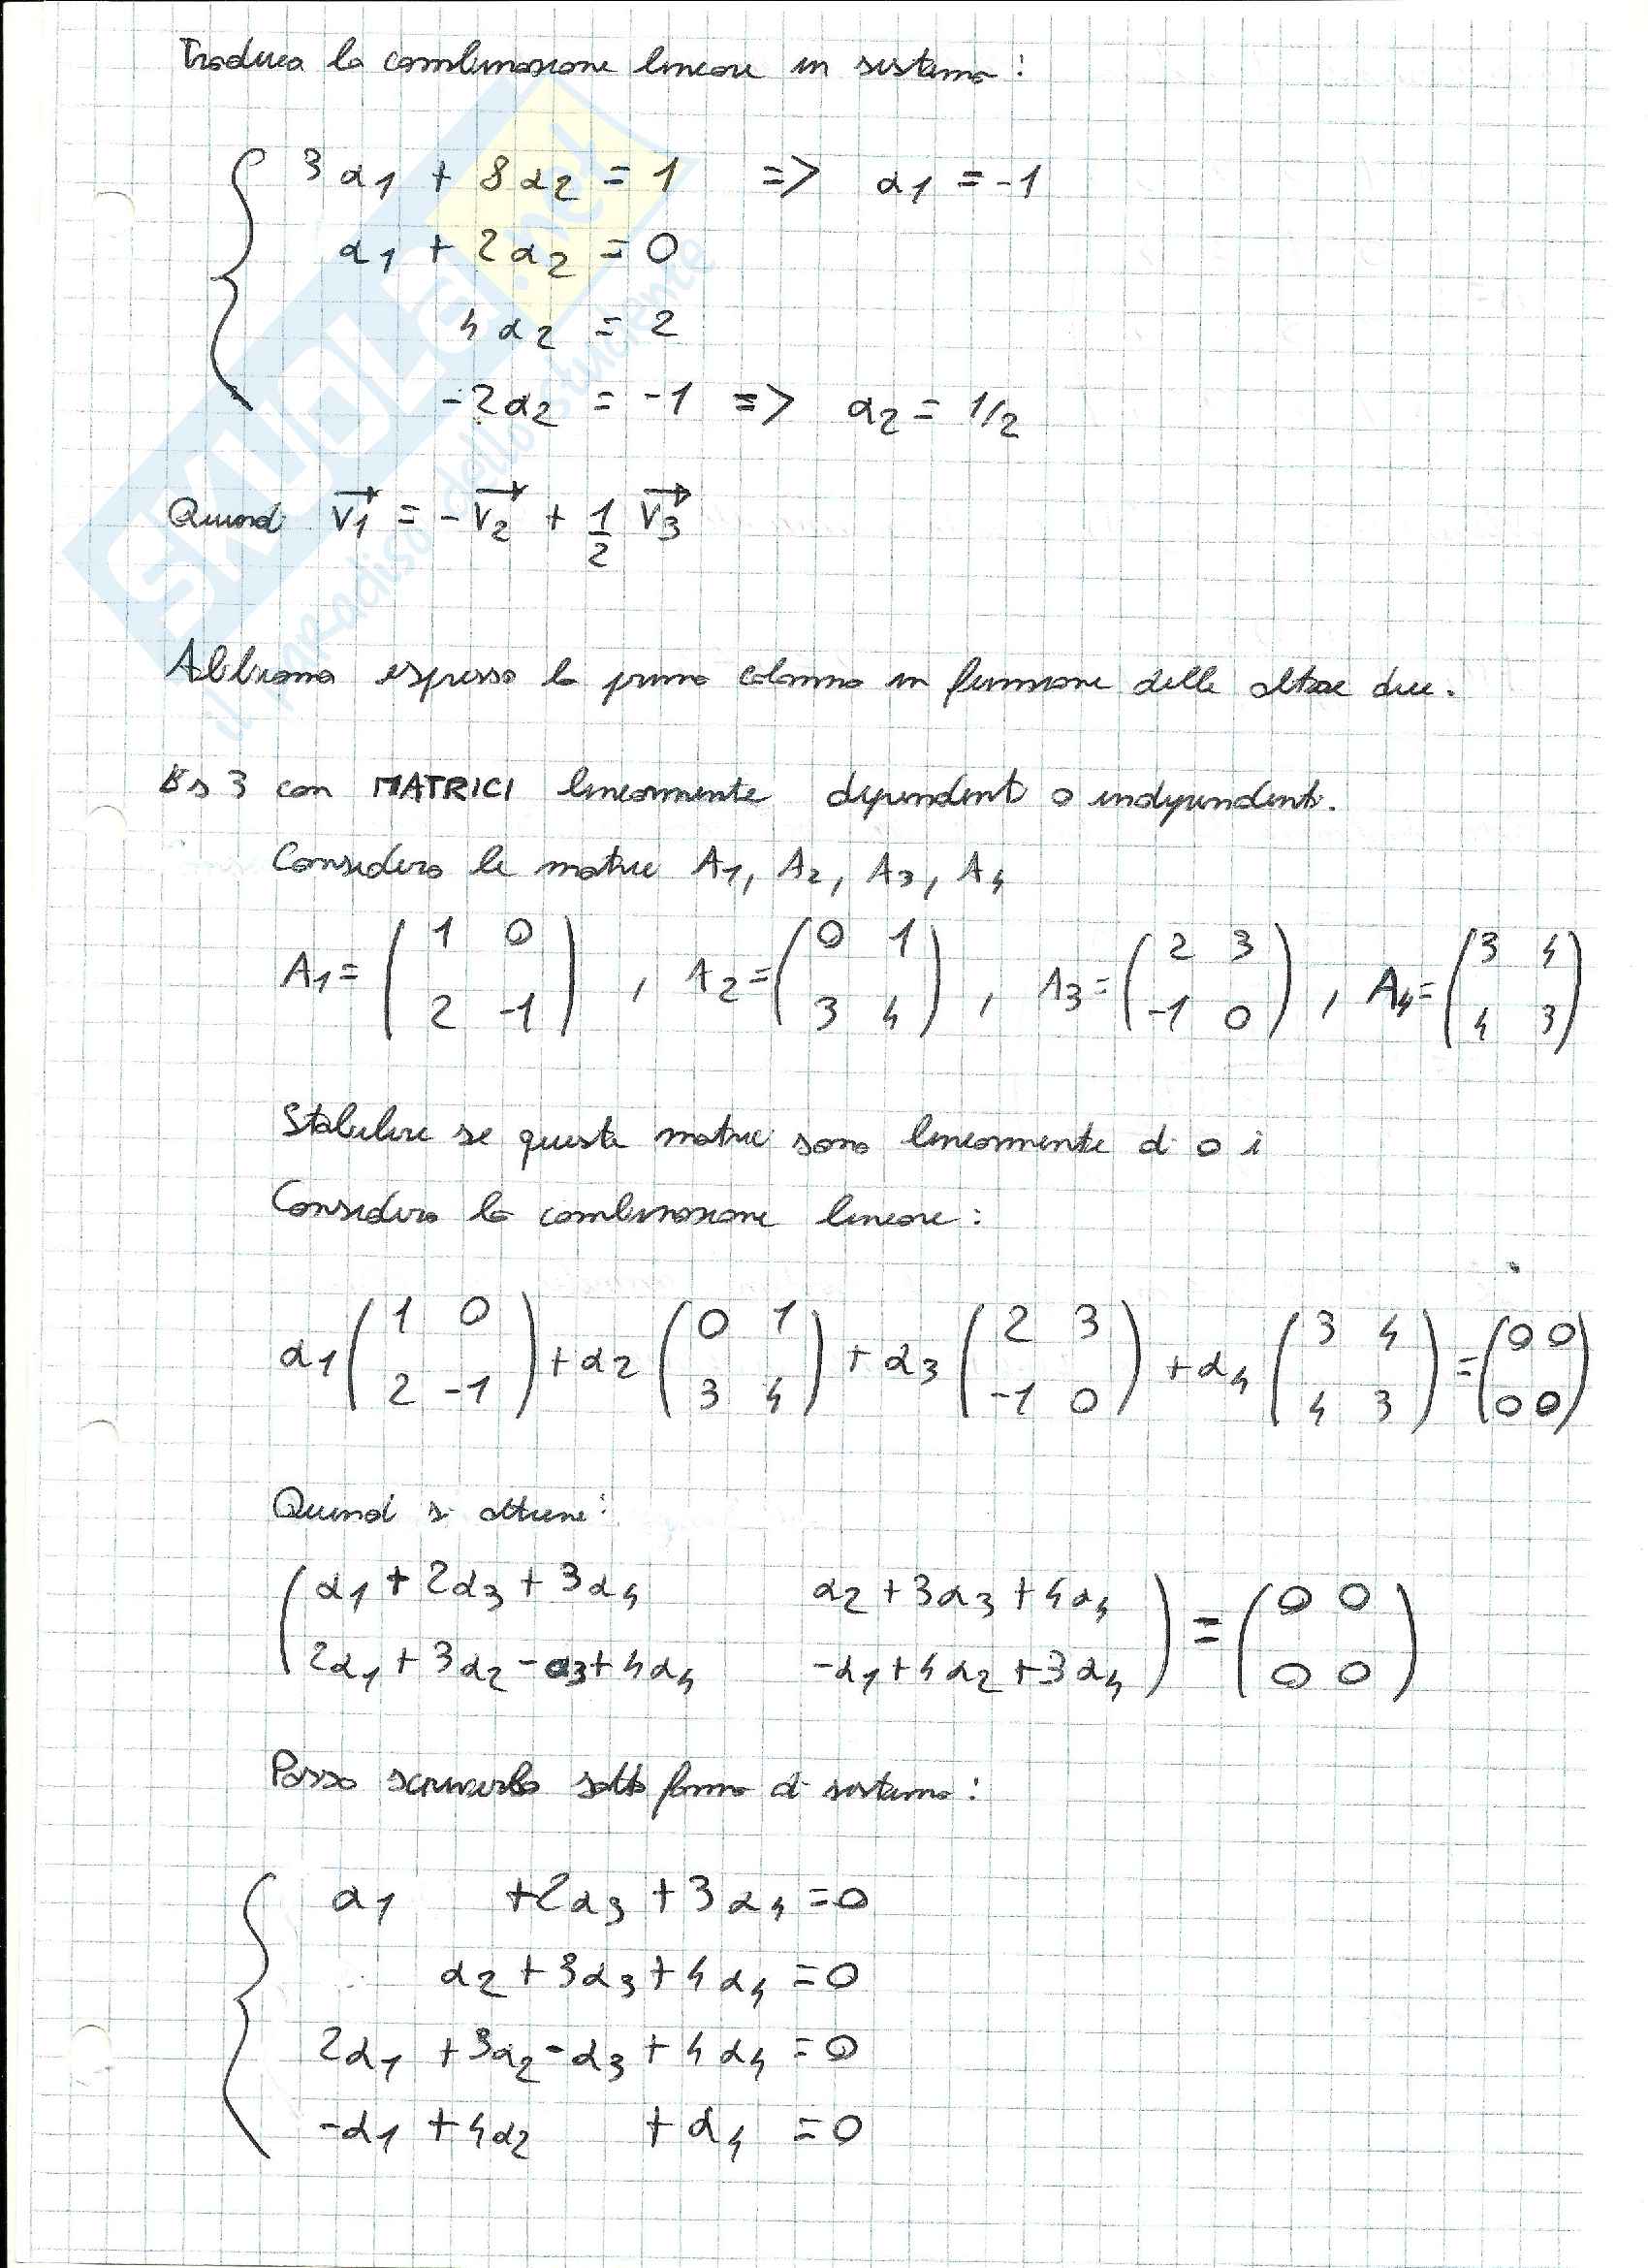 Traduco la combinazione lineare in sistema:
3α1 + 8α2 = 1 => α1 = -1
α1 + 2α2 = 0
4α2 = 2
-2α2 = -1 => α2 = 1/2
Quindi v1 = -v2 + 1/2 v3
Abbiamo espresso la prima colonna in funzione delle altre due.
Es 3 con MATRICI linearmente dipendenti o indipendenti.
Considero le matrici A1, A2, A3, A4
A1 = (1 0 , A2 = (0 1 , A3 = (2 3 , A4 = (3 4
2 -1) 3 4) -1 0) 4 3)
Stabilire se queste matrici sono linearmente d. o i
Considero la combinazione lineare:
α1 (1 0 + α2 (0 1 + α3 (2 3 + α4 (3 4 = (0 0
2 -1) 3 4) -1 0) 4 3) 0 0)
Quindi si ottiene:
(α1 + 2α3 + 3α4 α2 + 3α3 + 4α4 = (0 0
2α1 + 3α2 - α3 + 4α4 -α1 + 4α2 + 3α4) 0 0)
Posso scriverlo sotto forma di sistema:
α1 + 2α3 + 3α4 = 0
α2 + 3α3 + 4α4 = 0
2α1 + 3α2 - α3 + 4α4 = 0
-α1 + 4α2 + α4 = 0
SKUOLA.net
il paradiso dello studente